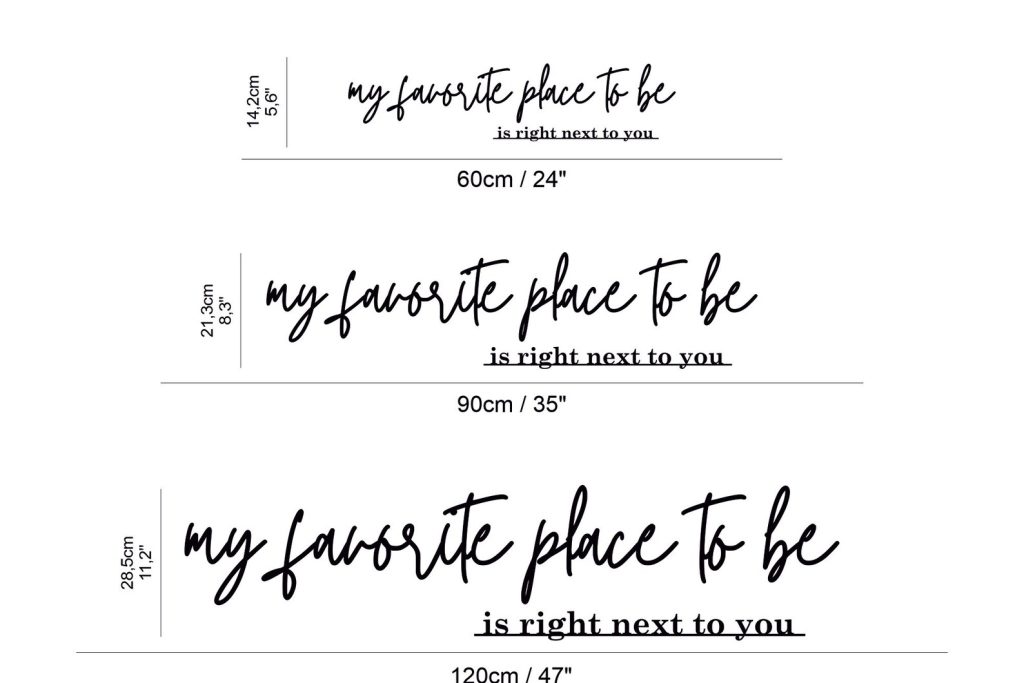 14,2cm
5,6"
my favorite place to be
is right next to you
60cm / 24"
21,3cm
8,3"
my favorite place to be
is right next to you
90cm / 35"
28,5cm
11,2"
my favorite place to be
is right next to you
120cm / 47"